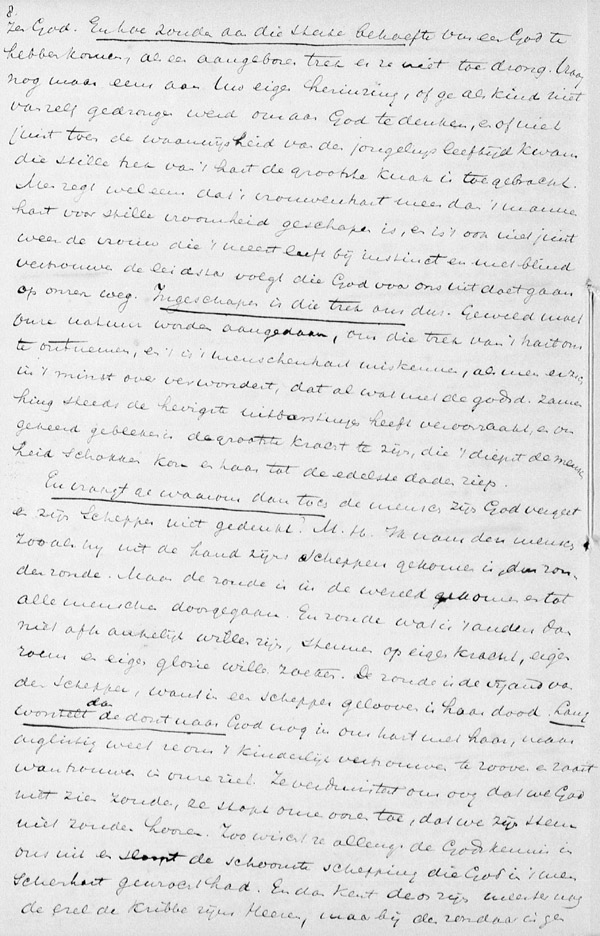 8.
zen God. En hoe zonde aan die sterke behoefte van een God te
hebben komen, als een aangeboren trek er ze niet toe drong. Vraag
nog maar eens aan Uw eigen herinring, of ge als kind niet
vanzelf gedrongen werd om aan God te denken, en of niet
juist toen de waanwijsheid van den jongelings leeftijd kwam
die stille trek van 't hart de grootste knak is toegebracht.
Men zegt wel eens dat 't vrouwenhart meer dan 't mannen
hart voor stille vroomheid geschapen is, en is 't ook niet juist
weer de vrouw die 't meest leeft bij instinct en met blind
vertrouwen de leidster volgt die God voor ons uit doet gaan
op onzen weg. Ingeschapen is die trek ons dus. Geweld moet
onze natuur worden aangedaan, om die trek van 't hart ons
te ontnemen, en 't is 't menschenhart miskennen, als men er zich
in 't minst over verwondert, dat al wat met de godsd. samen
hing steeds de hevigste uitbarstingen heeft veroorzaakt, en
gebleken is de grootste kracht te zijn, die 't diepst de mensch
heid schokken kon en haar tot de edelste daden riep.
En vraagt ge waarom dan toch de mensch zijn God vergeet
en zijn Schepper niet gedenkt? M. H. Ik nam den mensch
zooals hij uit de hand zijns Scheppers gekomen is, dus zon-
der zonde. Maar de zonde is in de wereld gekomen en tot
alle menschen doorgegaan. En zonde wat is 't anders dan
niet afhankelijk willen zijn, steunen op eigen kracht, eigen
roem en eigen glorie willen zoeken. De zonde is de vijand van
den Schepper, want in een schepper gelooven is haar dood. Lang
worstelt dan de dorst naar God nog in ons hart met haar, maar
arglistig weet ze ons 't kinderlijk vertrouwen te rooven en zaait
wantrouwen in onze ziel. Ze verduistert ons oog dat we God
niet zien zonden, ze stopt onze ooren toe, dat we zijn stem
niet zonden hooren. Zoo wischt ze allengs de Godskennis in
ons uit en sloopt de schoonste schepping die God in 't men
schenhart gewrocht had. En dan kent de os zijn meester nog
de ezel de kribbe zijns Heeren, maar bij den zondaar is geen